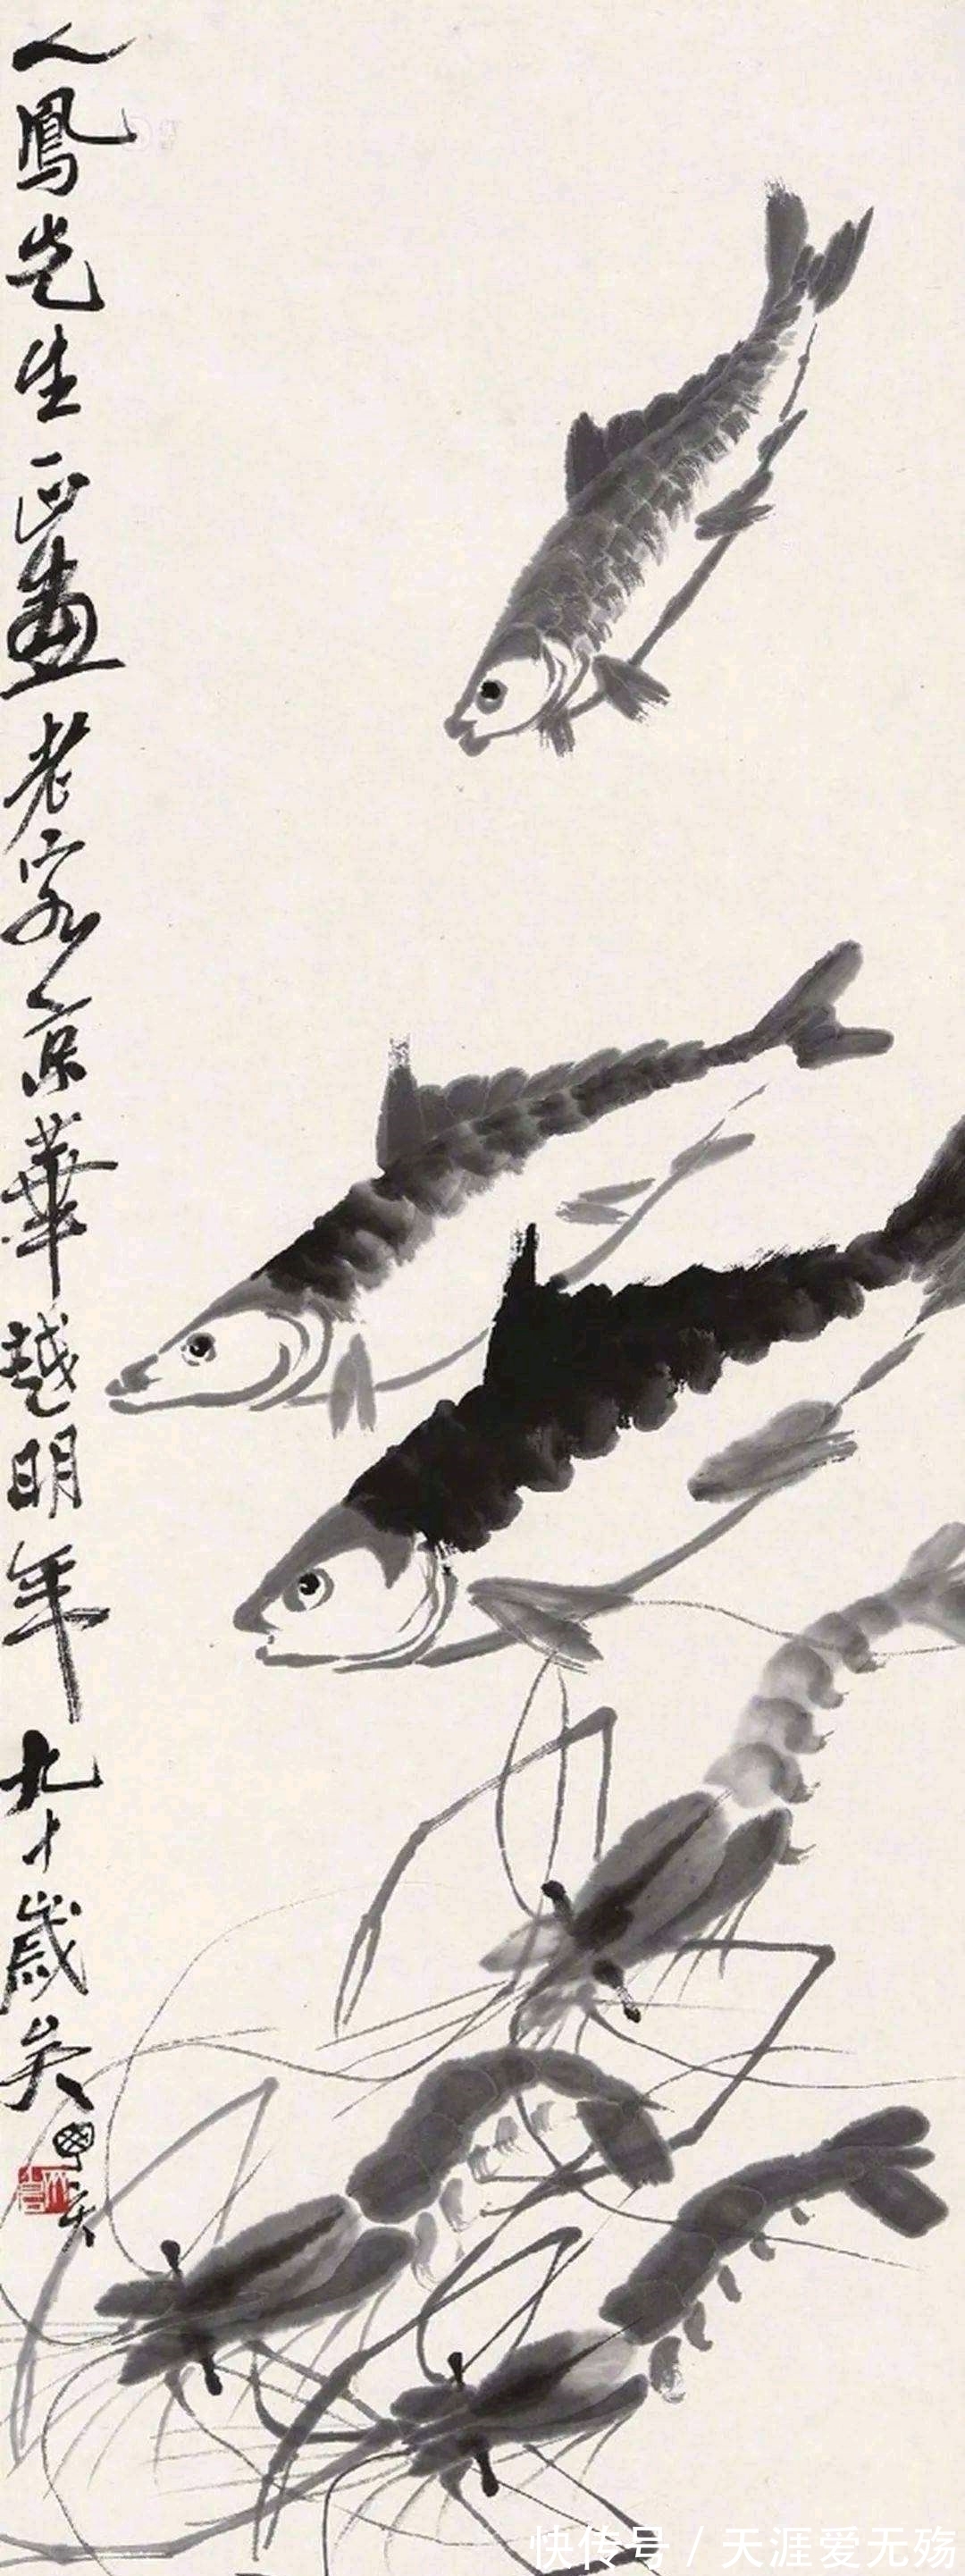 人鳳先生正畫老客京華越明年九十歲矣
快传号/天涯爱无殇